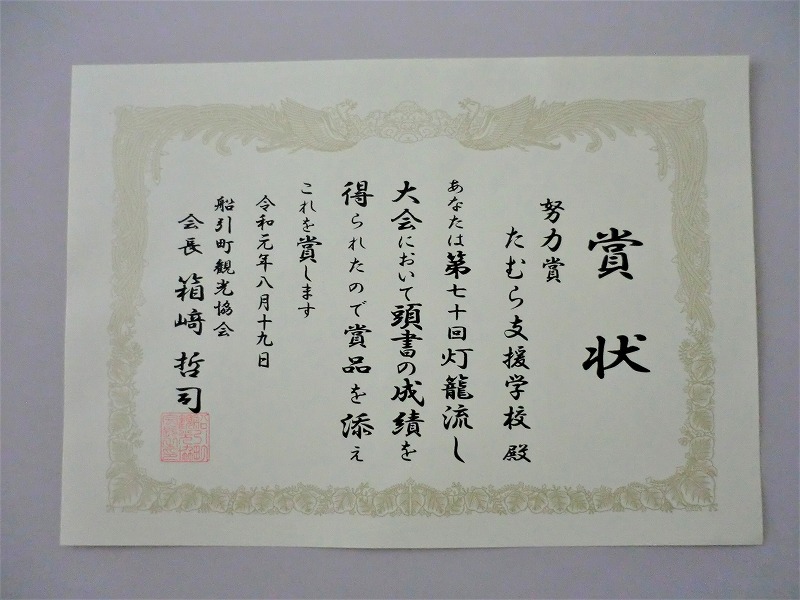 賞状
努力賞
たむら支援学校 殿
あなたは第七十回灯籠流し
大会において頭書の成績を
得られたので賞品を添え
これを賞します
令和元年八月十九日
船引町観光協会
会長 箱﨑 哲司